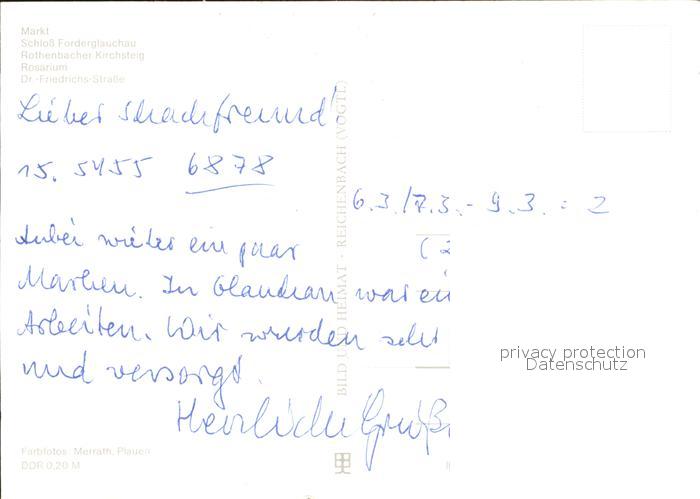 Markt
Schloß Forderglauchau
Rothenbacher Kirchsteig
Rosarium
Dr.-Friedrichs-Straße
Lieber Schachfreund!
15. 5455 6878
6.3./7.3.- 9.3. = 2
(2
Anbei wieder ein paar
Marken. In Glauchau war ein
Arbeiten. Wir wurden sehr
und versorgt.
Herzliche Grüße
BILD UND HEIMAT · REICHENBACH (VOGTL)
privacy protection
Datenschutz
Farbfotos: Merrath, Plauen
DDR 0,20 M